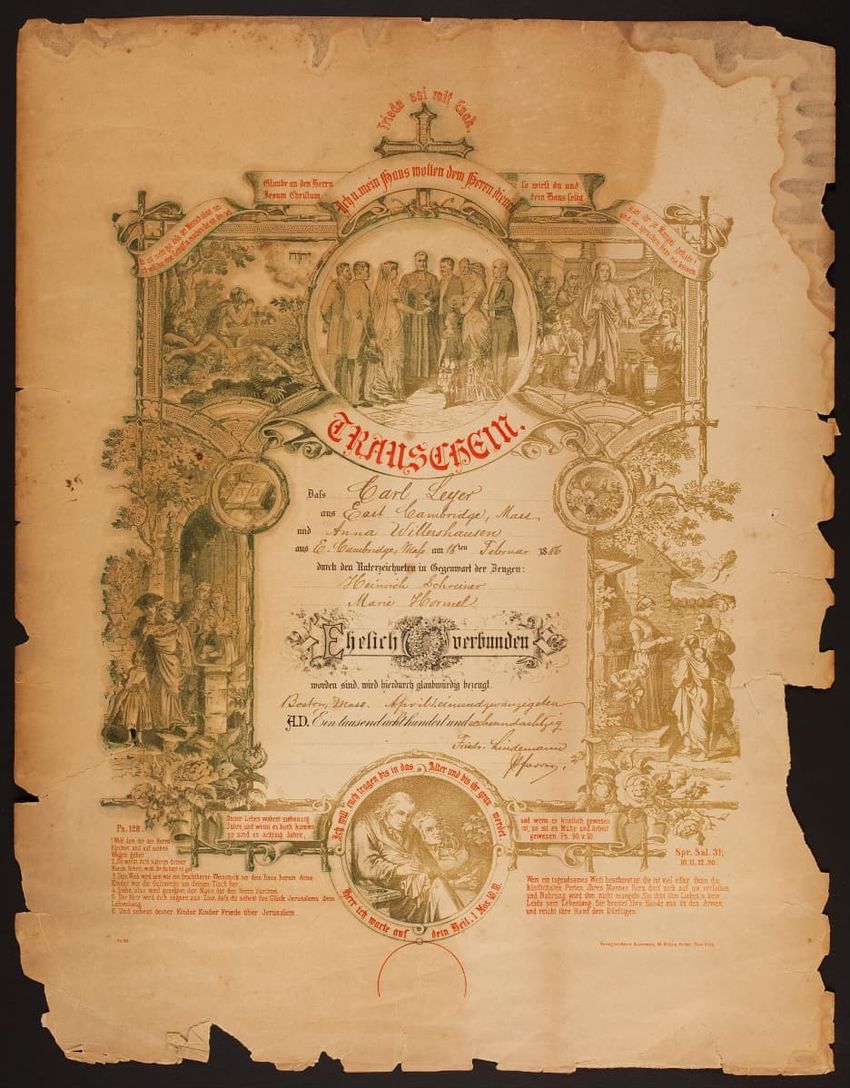 Friede sei mit Euch.
Ich u. mein Haus wollen dem Herrn dienen
Glaube an den Herrn
Jesum Christum
So wirst du und
dein Haus selig
TRAUSCHEIN.
Daſs Carl Leyer
aus East Cambridge, Mass
und Anna Willershausen
aus E. Cambridge, Maſs am 18ten Februar 1886
durch den Unterzeichneten in Gegenwart der Zeugen:
Heinrich Schreiner
Marie Hormel
Ehelich verbunden
worden sind, wird hierdurch glaubwürdig bezeugt.
Boston, Mass. April
A.D. Eintausend acht hundert und sechsundachtzig
Friedr. Lindemann
Pfarrer.
Ich will euch tragen bis in das Alter und bis ihr grau werdet
Herr ich warte auf dein Heil, 1 Mos
Unser Leben währet siebenzig
Jahre, und wenn es hoch kommt
so sind es achtzig Jahre,
und wenn es köstlich gewesen
ist, so ist es Mühe und Arbeit
gewesen. Ps. 90. v. 10.
Ps. 128.
1. Wohl dem der den Herrn
fürchtet und auf seinen
Wegen gehet
2. Du wirst dich nähren deiner
Hände Arbeit, wohl dir du hast es gut
3. Dein Weib wird sein wie ein fruchtbarer Weinstock um dein Haus herum deine
Kinder wie die Oelzweige um deinen Tisch her.
4. Siehe, also wird gesegnet der Mann der den Herrn fürchtet.
5. Der Herr wird dich segnen aus Zion, daß du sehest das Glück Jerusalems dein
Lebenlang.
6. Und sehest deiner Kinder Kinder Friede über Jerusalem.
Spr. Sal. 31,
10. 11. 12. 20.
Wem ein tugendsames Weib bescheret ist, die ist viel edler denn die
köstlichsten Perlen. Ihres Mannes Herz darf sich auf sie verlassen
und Nahrung wird ihm nicht mangeln. Sie thut ihm Liebes u. kein
Leids sein Lebenlang. Sie breitet ihre Hände aus zu den Armen,
und reicht ihre Hand dem Dürftigen.